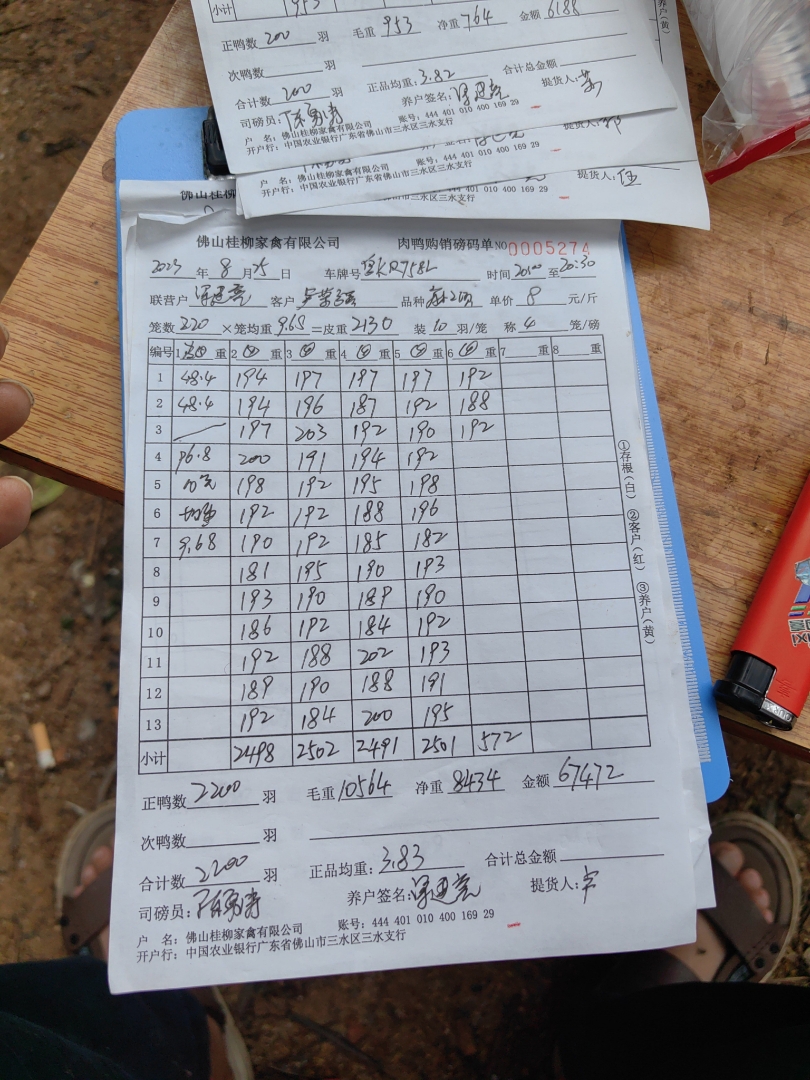 小计 953
正鸭数 200 羽 毛重 953 净重 764 金额 6188
次鸭数 羽
合计数 200 羽 正品均重: 3.82 合计总金额
司磅员: 养户签名: 提货人:
户 名: 佛山桂柳家禽有限公司 账号: 444 401 010 400 169 29
开户行: 中国农业银行广东省佛山市三水区三水支行
提货人:
户 名: 佛山桂柳家禽有限公司 账号: 444 401 010 400 169 29
开户行: 中国农业银行广东省佛山市三水区三水支行
提货人: 伍
佛山桂柳
佛山桂柳家禽有限公司 肉鸭购销磅码单 NO 0005274
2023 年 8 月 25 日 车牌号 R758L 时间 20:00 至 20:30
联营户 客户 品种 单价 8 元/斤
笼数 220 ×笼均重 9.68 =皮重 2130 装 10 羽/笼 称 4 笼/磅
编号 1 重 2 重 3 重 4 重 5 重 6 重 7 重 8 重
1 48.4 194 197 197 197 192
2 48.4 194 196 187 192 188
3 197 203 192 190 192
4 96.8 200 191 194 192
5 198 192 195 198
6 192 192 188 196
7 9.68 190 192 185 182
8 181 195 190 193
9 193 190 189 190
10 186 192 184 192
11 192 188 202 193
12 189 190 188 191
13 192 184 200 195
小计 2498 2502 2491 2501 572
①存根(白) ②客户(红) ③养户(黄)
正鸭数 2200 羽 毛重 10564 净重 8434 金额 67472
次鸭数 羽
合计数 2200 羽 正品均重: 3.83 合计总金额
司磅员: 养户签名: 提货人:
户 名: 佛山桂柳家禽有限公司 账号: 444 401 010 400 169 29
开户行: 中国农业银行广东省佛山市三水区三水支行